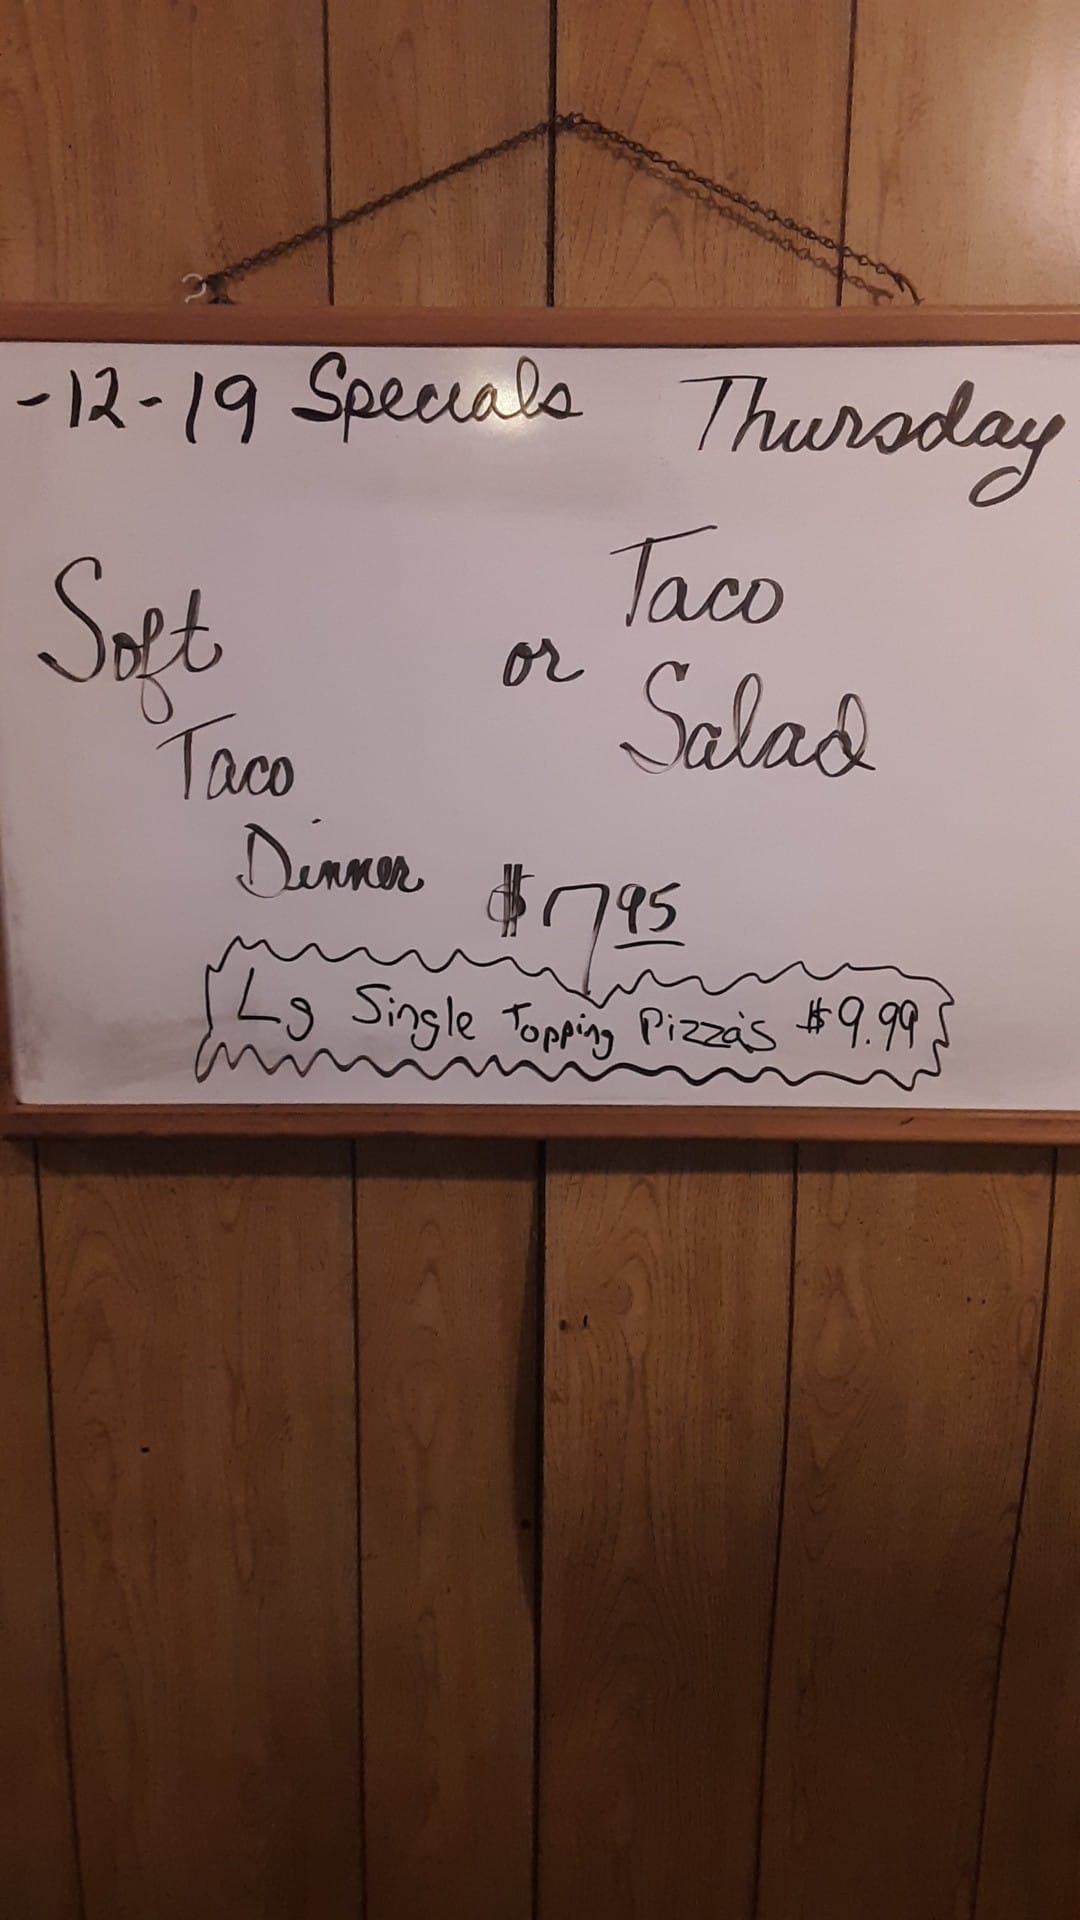 -12-19 Specials Thursday
Soft
Taco
Dinner
or
Taco
Salad
$7 95
Lg Single Topping Pizza's $9.99